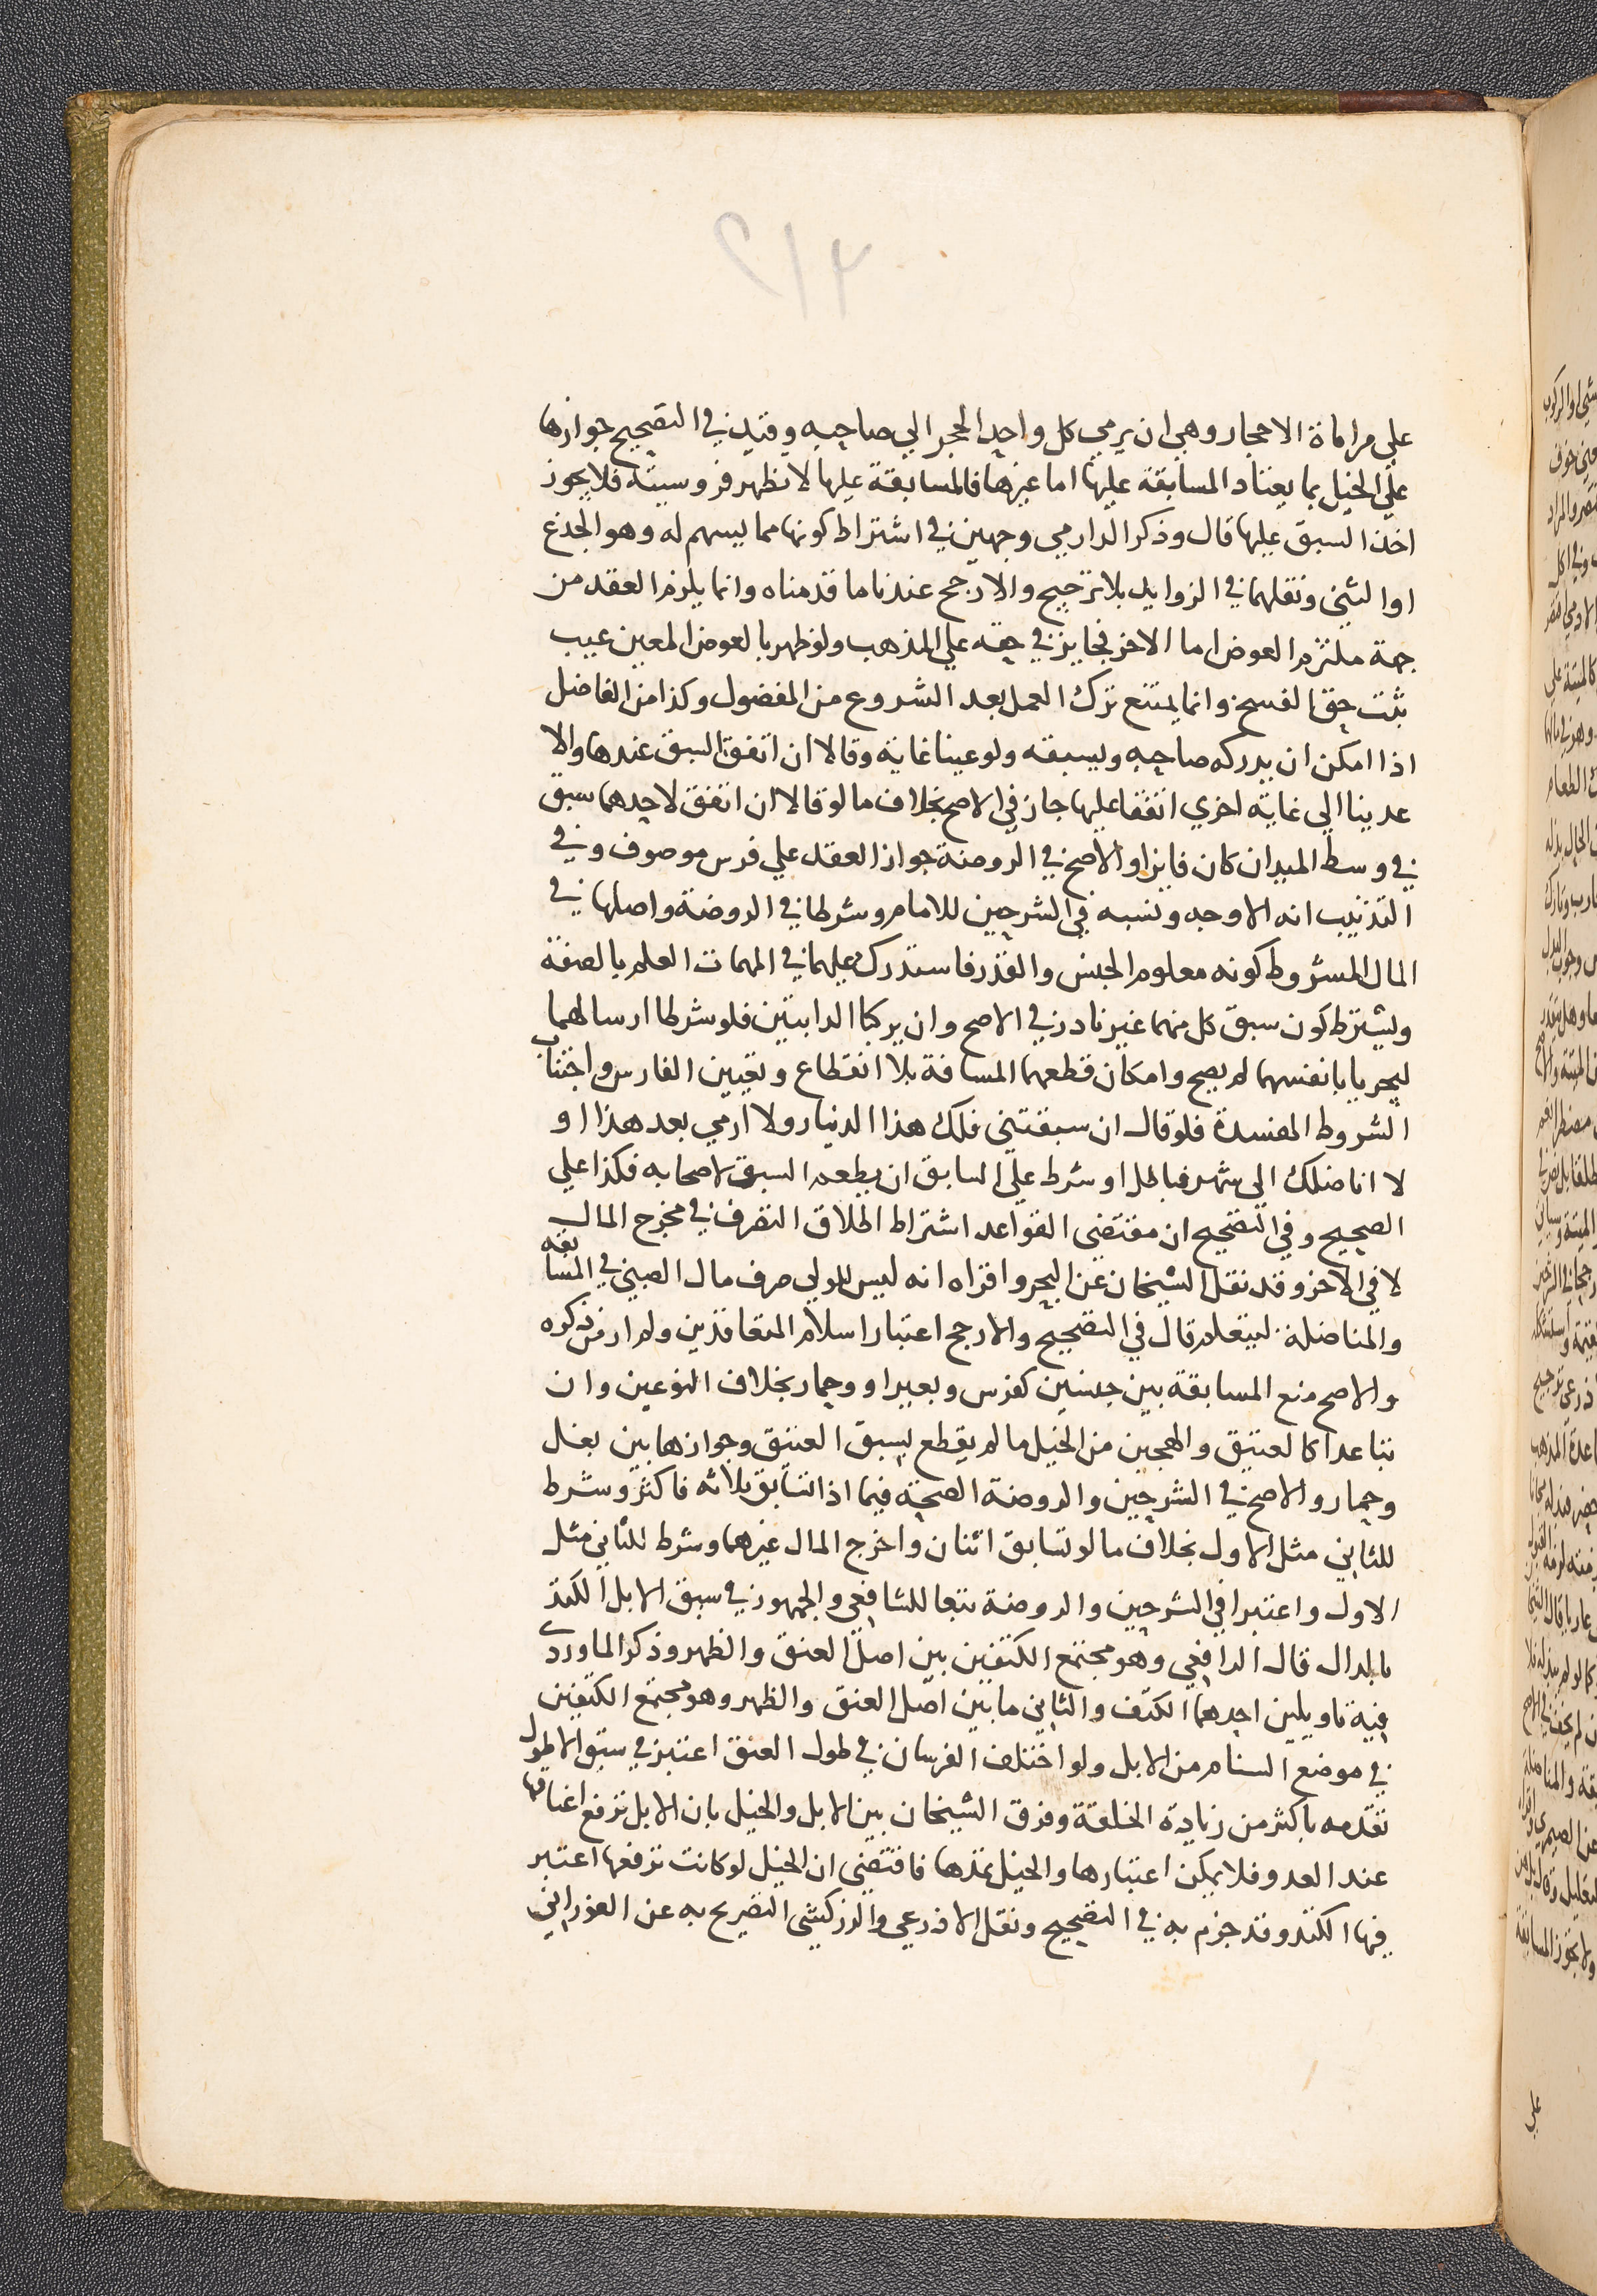 علي مراماة الاحجار وهي ان يرمي كل واحد الحجر الي صاحبه وقيد في التصحيح جوازها
علي الخيل بما يعتاد المسابقة عليها اما غيرها فالمسابقة عليها لا تظهر فروسيته فلا يجوز
اخذ السبق عليها قال وذكر الدارمي وجهين في اشتراط كونها مما يسهم له وهو الجذع
او الثني ونقلهما في الزوايد بلا ترجيح والارجح عندنا ما قدمناه وانما يلزم العقد من
جهة ملتزم العوض اما الاخر فجايز في حقه علي المذهب ولو ظهر بالعوض المعين عيب
ثبت حق الفسخ وانما يمتنع ترك العمل بعد الشروع من المفضول وكذا من الفاضل
اذا امكن ان يدركه صاحبه ويسبقه ولو عينا غاية وقالا ان اتفق السبق عندها والا
عدينا الي غاية اخري اتفقا عليها جاز في الاصح بخلاف ما لو قالا ان اتفق لاحدهما سبق
في وسط الميدان كان فايزا والاصح في الروضة جواز العقد علي فرس موصوف وفي
التذنيب انه الاوجه ونسبه في الشرحين للامام وشرطا في الروضة واصلها في
المال المشروط كونه معلوم الجنس والقدر فاستدرك عليهما في المهمات العلم بالصفة
ويشترط كون سبق كل منهما غير نادر في الاصح وان يركبا الدابتين فلو شرطا ارسالهما
ليجريا بانفسهما لم يصح وامكان قطعهما المسافة بلا انقطاع وتعيين الفارس واجتناب
الشروط المفسدة فلو قال ان سبقتني فلك هذا الدينار ولا ارمي بعد هذا او
لا اناضلك الي شهر فباطل او شرط علي السابق ان يطعم السبق لاصحابه فكذا علي
الصحيح وفي التصحيح ان مقتضي القواعد اشتراط اطلاق التصرف في مخرج المال
لا في الاخر وقد نقل الشيخان عن البحر واقراه انه ليس للولي صرف مال الصبي في المسابقه
والمناضلة ليتعلم قال في التصحيح والارجح اعتبار اسلام المتعاقدين ولم ار من ذكره
والاصح منع المسابقة بين جنسين كفرس وبعير او وحمار بخلاف النوعين وان
تباعدا كالعتيق والهجين من الخيل ما لم يقطع بسبق العتيق وجوازها بين بغل
وحمار والاصح في الشرحين والروضة الصحة فيما اذا تسابق ثلاثه فاكثر وشرط
للثاني مثل الاول بخلاف ما لو تسابق اثنان واخرج المال غيرهما وشرط للثاني مثل
الاول واعتبرا في الشرحين والروضة تبعا للشافعي والجمهور في سبق الابل الكتد
بالدال قال الرافعي وهو مجتمع الكتفين بين اصل العنق والظهر وذكر الماوردي
فيه تاويلين احدهما الكتف والثاني ما بين اصل العنق والظهر وهو مجتمع الكتفين
في موضع السنام من الابل ولو اختلف الفرسان في طول العنق اعتبر في سبق الاطول
تقدمه باكثر من زيادة الخلقة وفرق الشيخان بين الابل والخيل بان الابل ترفع اعناقها
عند العدو فلا يمكن اعتبارها والخيل تمدها فاقتضي ان الخيل لو كانت ترفعها اعتبر
فيها الكتد وقد جزم به في التصحيح ونقل الاذرعي والزركشي التصريح به عن الفوراني
علي